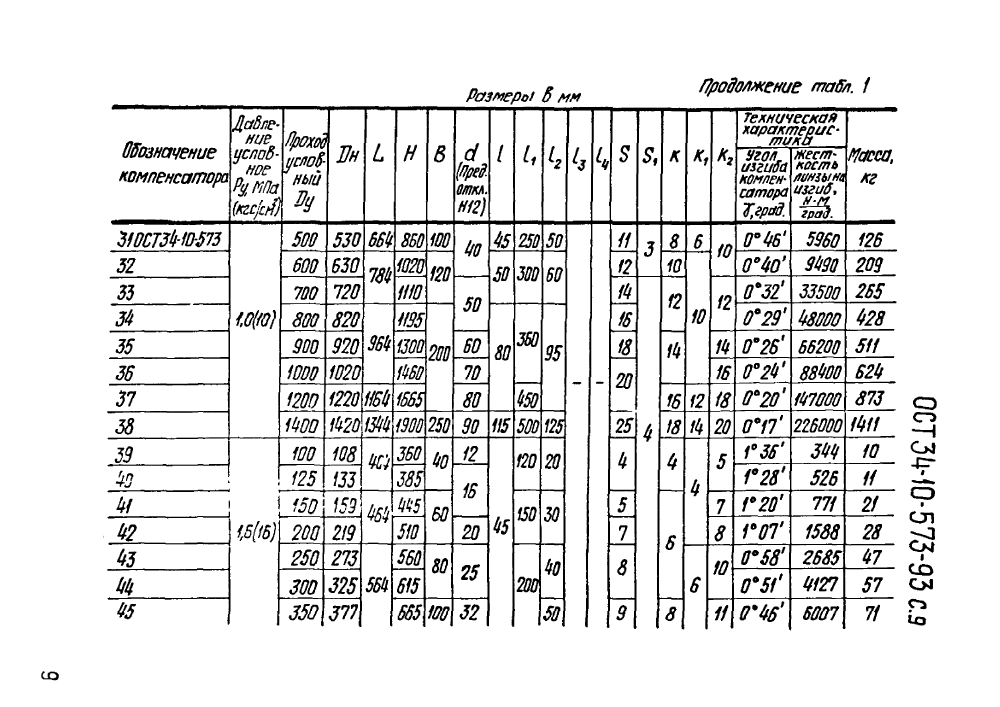 Размеры в мм
Продолжение табл. 1
Обозначение компенсатора | Давление условное Ру, МПа (кгс/см²) | Проход условный Dу | Dн | L | H | B | d (Пред. откл. H12) | l | l₁ | l₂ | l₃ | l₄ | S | S₁ | K | K₁ | K₂ | Техническая характеристика | Угол изгиба компенсатора γ, град. | жесткость линзы на изгиб, Н·М/град. | Масса, кг
31 ОСТ 34-10-573 | 1,0(10) | 500 | 530 | 664 | 860 | 100 | 40 | 45 | 250 | 50 | – | – | 11 | 3 | 8 | 6 | 10 | 0°46' | 5960 | 126
32 | 600 | 630 | 784 | 1020 | 120 | 50 | 300 | 60 | 12 | 10 | 10 | 0°40' | 9490 | 209
33 | 700 | 720 | 1110 | 50 | 14 | 4 | 12 | 12 | 0°32' | 33500 | 265
34 | 800 | 820 | 964 | 1195 | 200 | 80 | 360 | 95 | 16 | 0°29' | 48000 | 428
35 | 900 | 920 | 1300 | 60 | 18 | 14 | 14 | 0°26' | 66200 | 511
36 | 1000 | 1020 | 1460 | 70 | 20 | 16 | 0°24' | 88400 | 624
37 | 1200 | 1220 | 1164 | 1665 | 80 | 450 | 16 | 12 | 18 | 0°20' | 147000 | 873
38 | 1400 | 1420 | 1344 | 1900 | 250 | 90 | 115 | 500 | 125 | 25 | 18 | 14 | 20 | 0°17' | 226000 | 1411
39 | 1,6(16) | 100 | 108 | 404 | 360 | 40 | 12 | 45 | 120 | 20 | 4 | 4 | 4 | 5 | 1°36' | 344 | 10
40 | 125 | 133 | 385 | 16 | 1°28' | 526 | 11
41 | 150 | 159 | 464 | 445 | 60 | 150 | 30 | 5 | 6 | 7 | 1°20' | 771 | 21
42 | 200 | 219 | 510 | 20 | 7 | 8 | 1°07' | 1588 | 28
43 | 250 | 273 | 564 | 560 | 80 | 25 | 200 | 40 | 8 | 6 | 10 | 0°58' | 2685 | 47
44 | 300 | 325 | 615 | 0°51' | 4127 | 57
45 | 350 | 377 | 665 | 100 | 32 | 50 | 9 | 8 | 11 | 0°46' | 6007 | 71
ОСТ 34-10-573-93 с.9
9